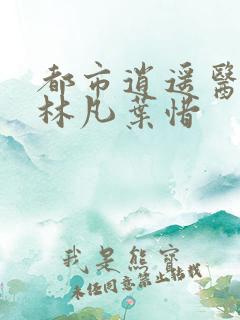 都市逍遥醫
林凡葉惜
我是熊寶
未经同意禁止转载